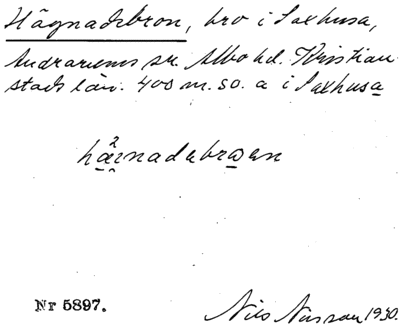 Hägnadsbron, bro i Saxhusa,
Andrarums sn. Albo hd. Kristian-
stads län. 400 m. so. a i Saxhusa
Nr 5897.
Nils Nilsson 1930.